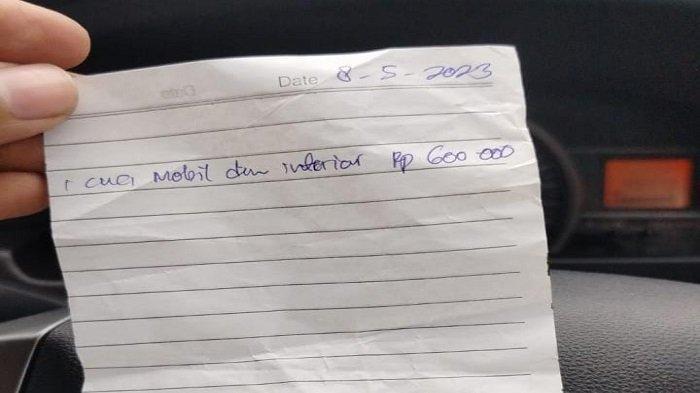 Date 8-5-2023
1 cuci mobil dan interior Rp 600.000